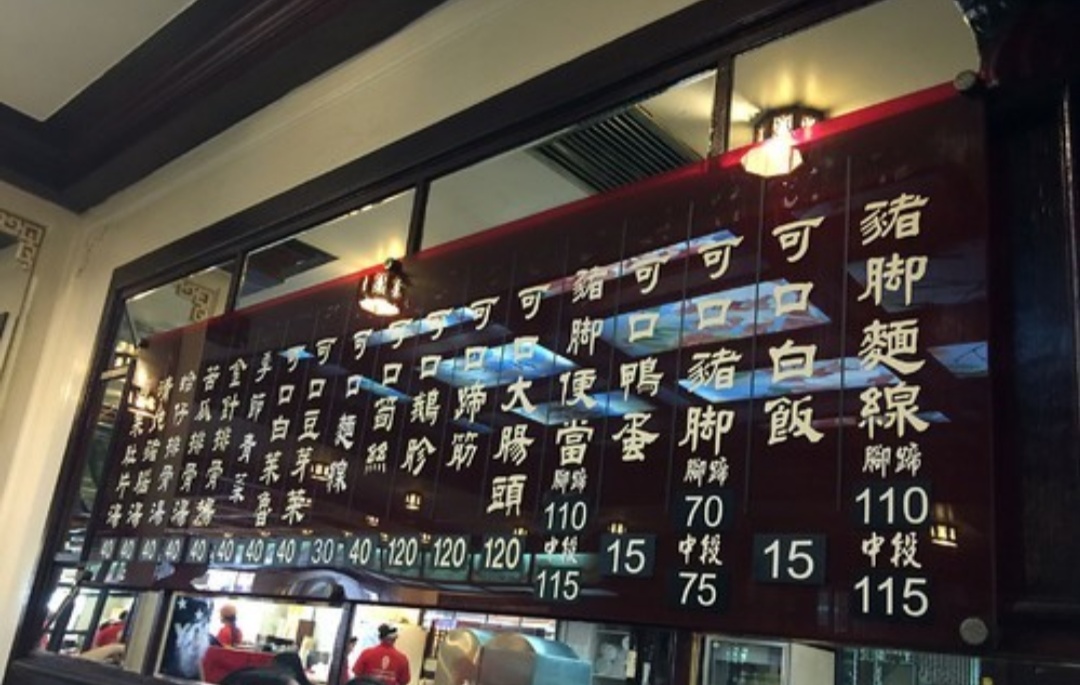 豬脚麵線
腳蹄
110
中段
115
可口白飯
15
可口豬脚
腳蹄
70
中段
75
可口鴨蛋
15
豬脚便當
腳蹄
110
中段
115
可口大腸頭
120
可口蹄筋
120
可口鵝胗
120
可口筍絲
40
可口麵線
30
可口豆芽菜
40
可口白菜魯
40
季節青菜
40
金針排骨湯
40
苦瓜排骨湯
40
蛤仔排骨湯
40
清燉豬腦湯
40
40